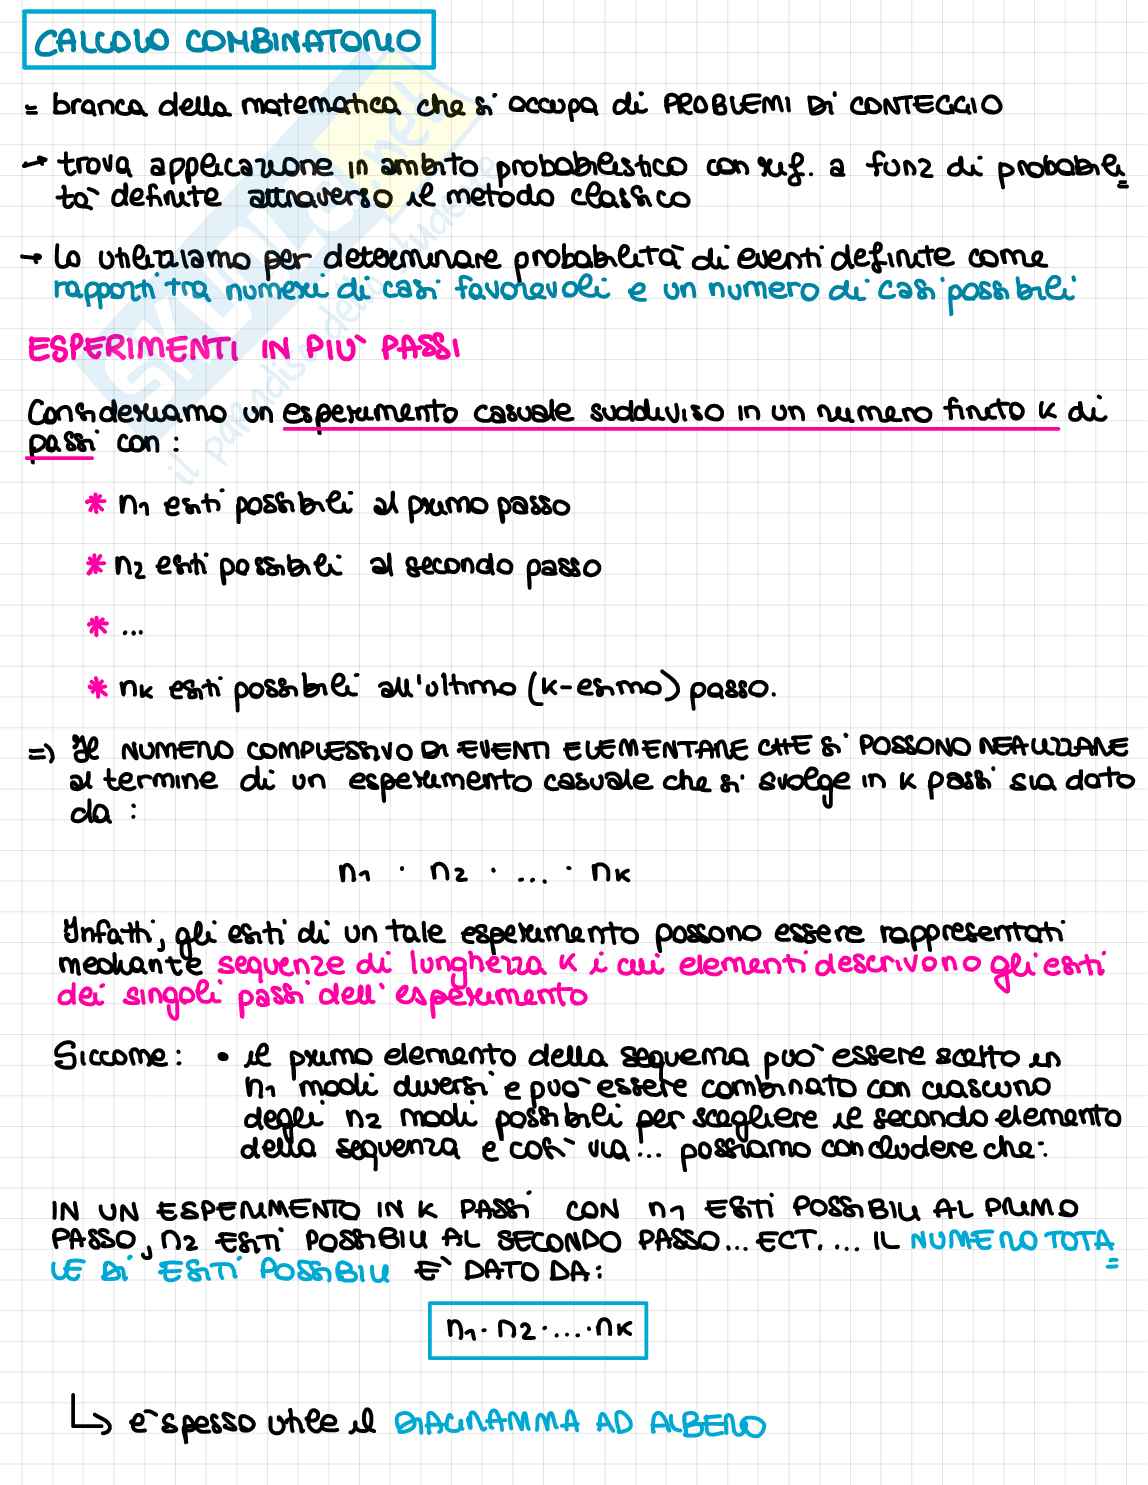 CALCOLO COMBINATORIO
= branca della matematica che si occupa di PROBLEMI DI CONTEGGIO
→ trova applicazione in ambito probabilistico con rif. a funz di probabili
tà definite attraverso il metodo classico
→ Lo utilizziamo per determinare probabilità di eventi definite come
rapporti tra numeri di casi favorevoli e un numero di casi possibili
ESPERIMENTI IN PIU' PASSI
Consideriamo un esperimento casuale suddiviso in un numero finito K di
passi con:
* n₁ esiti possibili al primo passo
* n₂ esiti possibili al secondo passo
* ...
* nₖ esiti possibili all'ultimo (K-esimo) passo.
=> Il NUMERO COMPLESSIVO DI EVENTI ELEMENTARE CHE SI POSSONO REALIZZARE
al termine di un esperimento casuale che si svolge in K passi sia dato
da:
n₁ · n₂ · ... · nₖ
Infatti, gli esiti di un tale esperimento possono essere rappresentati
mediante sequenze di lunghezza K i cui elementi descrivono gli esiti
dei singoli passi dell'esperimento
Siccome: • il primo elemento della sequenza può essere scelto in
n₁ modi diversi e può essere combinato con ciascuno
degli n₂ modi possibili per scegliere il secondo elemento
della sequenza e così via... possiamo concludere che:
IN UN ESPERIMENTO IN K PASSI CON n₁ ESITI POSSIBILI AL PRIMO
PASSO, n₂ ESITI POSSIBILI AL SECONDO PASSO... ECT. ... IL NUMERO TOTA
LE DI ESITI POSSIBILI E' DATO DA:
n₁ · n₂ · ... · nₖ
↳ è spesso utile il DIAGRAMMA AD ALBERO
SKUOLA.net
il paradiso dello studente